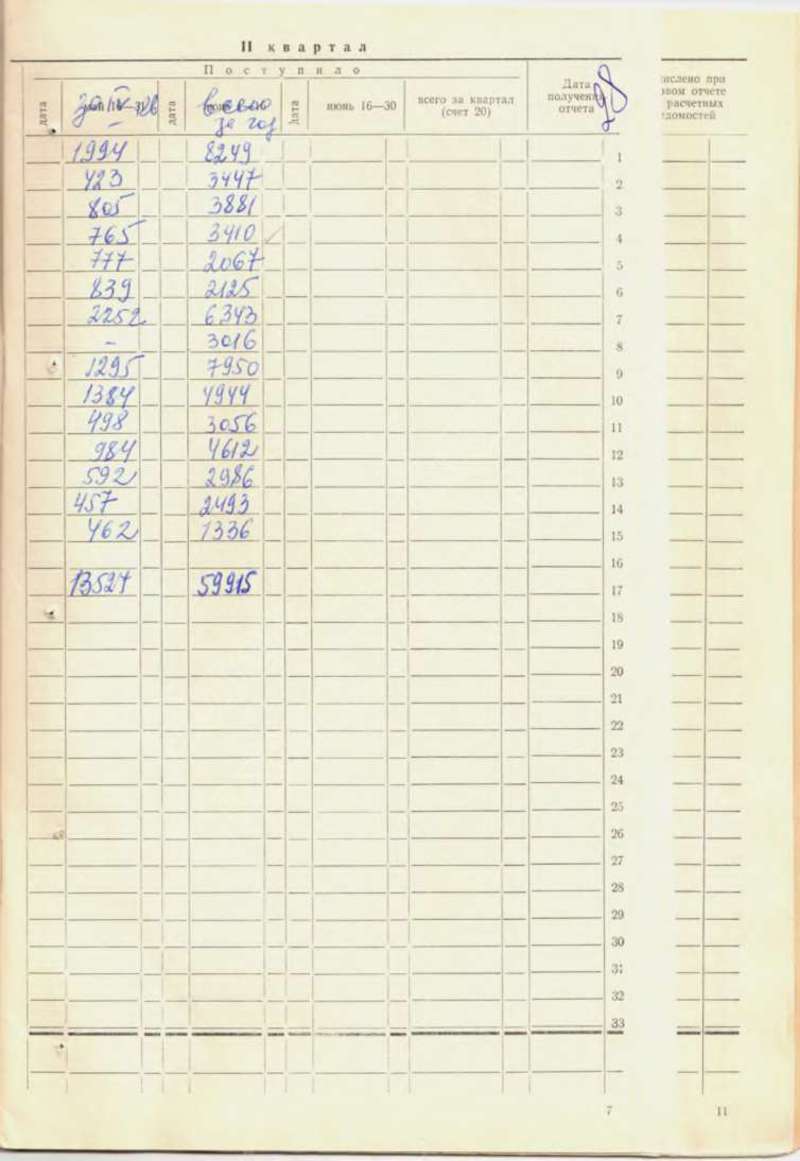 II квартал
Поступило
дата
за IV кв
дата
всего за год
дата
июнь 16—30
всего за квартал (счет 20)
Дата получения отчета
98
числено при
вом отчете
расчетных
едомостей
1994 8249 1
423 3447 2
805 3881 3
765 3410 4
777 2067 5
839 2125 6
2252 6343 7
- 3016 8
1295 7950 9
1384 4944 10
498 3056 11
984 4612 12
592 2986 13
457 2493 14
462 1336 15
16
13527 59915 17
18
19
20
21
22
23
24
25
26
27
28
29
30
31
32
33
7 11